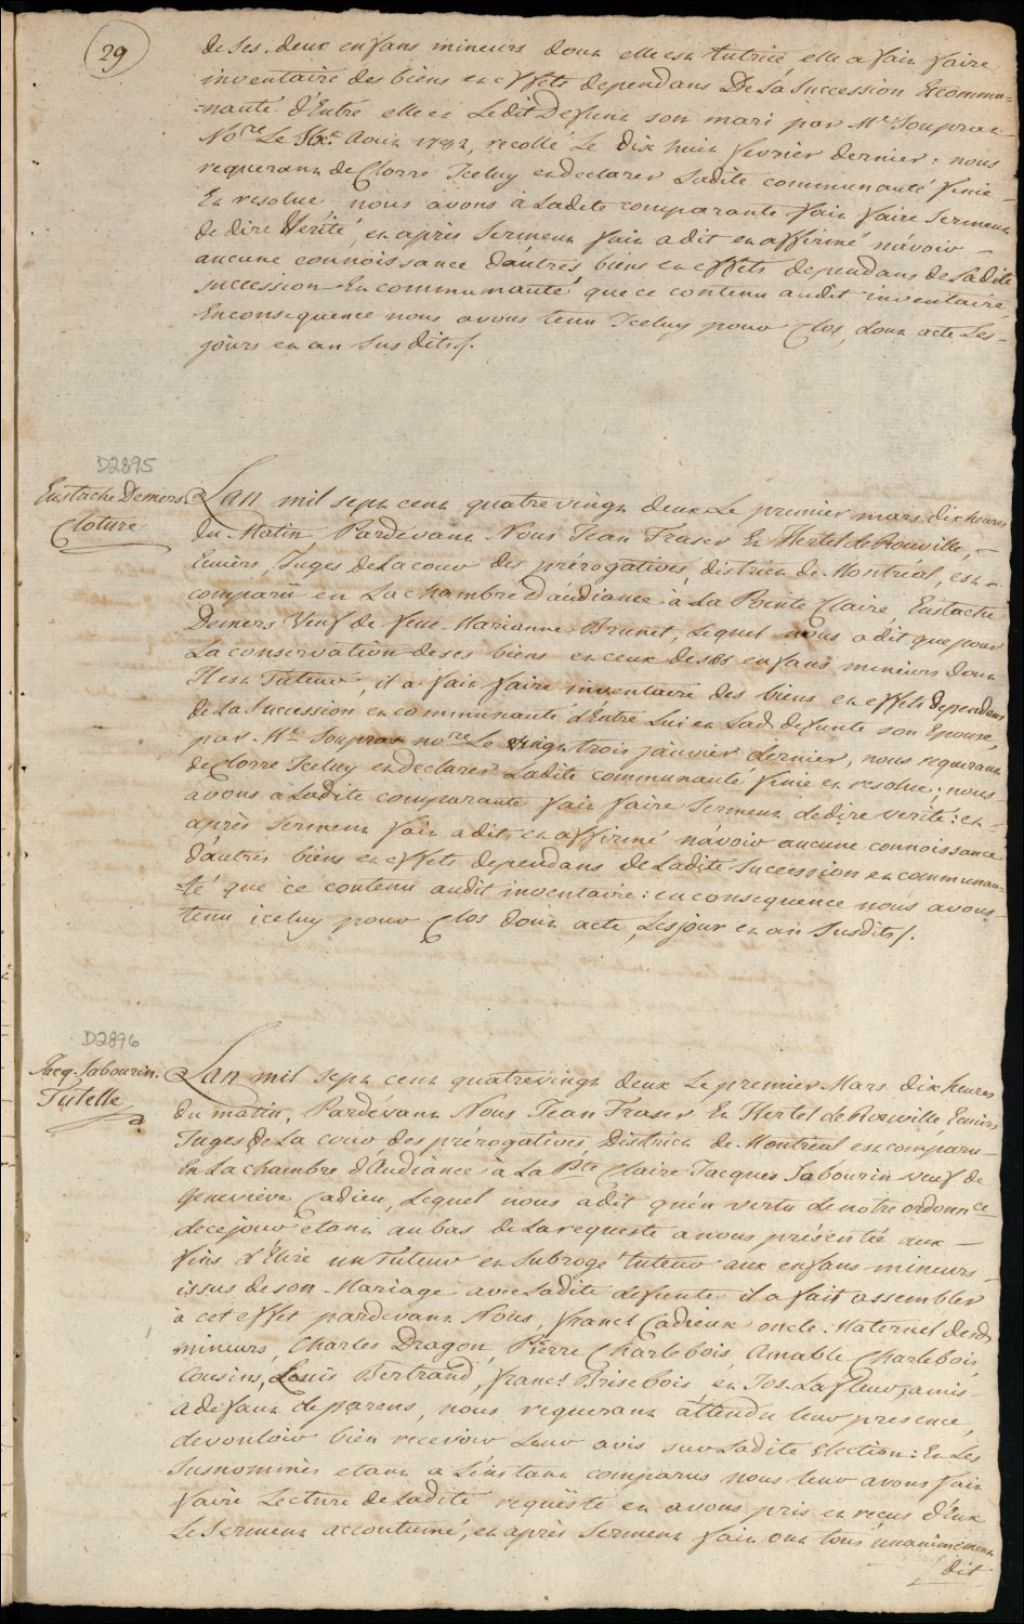 29
de ses deux enfans mineurs dont elle est tutrice, elle a fait faire
inventaire des biens et effets dependans De la Succession Et commu=
=nauté d'Entre elle et Ledit Defunt son mari par Me Soupras
Nore Le Aout recollé Le dix huit fevrier dernier; nous
requerant de Clorre Iceluy et declarer Ladite communauté finie
Et resolue, nous avons à Ladite comparante fait faire Serment
de dire Verité, et après Serment fait a dit et affirmé n'avoir
aucune connoissance d'autres biens et effets dependans de Ladite
succession Et communauté que ce contenu audit inventaire,
En consequence nous avons tenu Iceluy pour Clos, dont acte Les
jours et an Susdits/.
D2895
Eustache Demers
Cloture
Lan mil sept cent quatre vingt deux Le premier mars dix heures
du Matin, Pardevant Nous Jean Fraser Et Hertel de Rouville,
Ecuiers, Juges de La cour des prérogatives, district de Montréal, est
comparu en La chambre d'audiance à La Pointe Claire Eustache
Demers Veuf de feue Marianne Brunet, Lequel nous a dit que pour
La conservation de ses biens et ceux de ses enfans mineurs dont
Il est Tuteur, il a fait faire inventaire des biens et effets dependans
de La Succession et communauté d'Entre Lui et Lad. defunte son Epouse,
par Me Soupras nore Le vingt trois janvier dernier, nous requerant
de Clorre Iceluy et declarer Ladite communauté finie et resolue; nous
avons a Ladite comparante fait faire Serment de dire verité: et
après serment fait a dit et affirmé n'avoir aucune connoissance
d'autres biens et effets dependans de Ladite Succession et communau=
=té que ce contenu audit inventaire: en consequence nous avons
tenu iceluy pour Clos dont acte, Les jour et an Susdits/.
D2896
Jacq. Sabourin.
Tutelle
Lan mil sept cent quatre vingt deux Le premier Mars dix heures
du matin, Pardevant Nous Jean Fraser Et Hertel de Rouville Ecuiers
Juges de La cour des prérogatives District de Montreal est comparu
En La chambre d'Audiance à La Pte Claire Jacques Sabourin veuf de
Geneviève Cadieu, Lequel nous a dit qu'en vertu de notre ordonnce
de ce jour étant au bas de La requeste a nous présentée aux
fins d'Elire un Tuteur et Subrogé tuteur aux enfans mineurs
issus de son Mariage avec Ladite defunte il a fait assembler
à cet effet pardevant Nous, francs Cadieux oncle Maternel desds
mineurs, Charles Dragon, Pierre Charlebois, Amable Charlebois
Cousins, Louis Bertrand, francs Brisebois et Jos. Lafleur, amis
a defaut de parens, nous requerant attendu leur presence,
de vouloir bien recevoir Leur avis sur Ladite Election: Et Les
Susnommés etant a L'instant comparus nous leur avons fait
faire Lecture de Ladite requête et avons pris et recus d'Eux
Le Serment accoutumé, et après Serment fait ont tous unanimement
dit